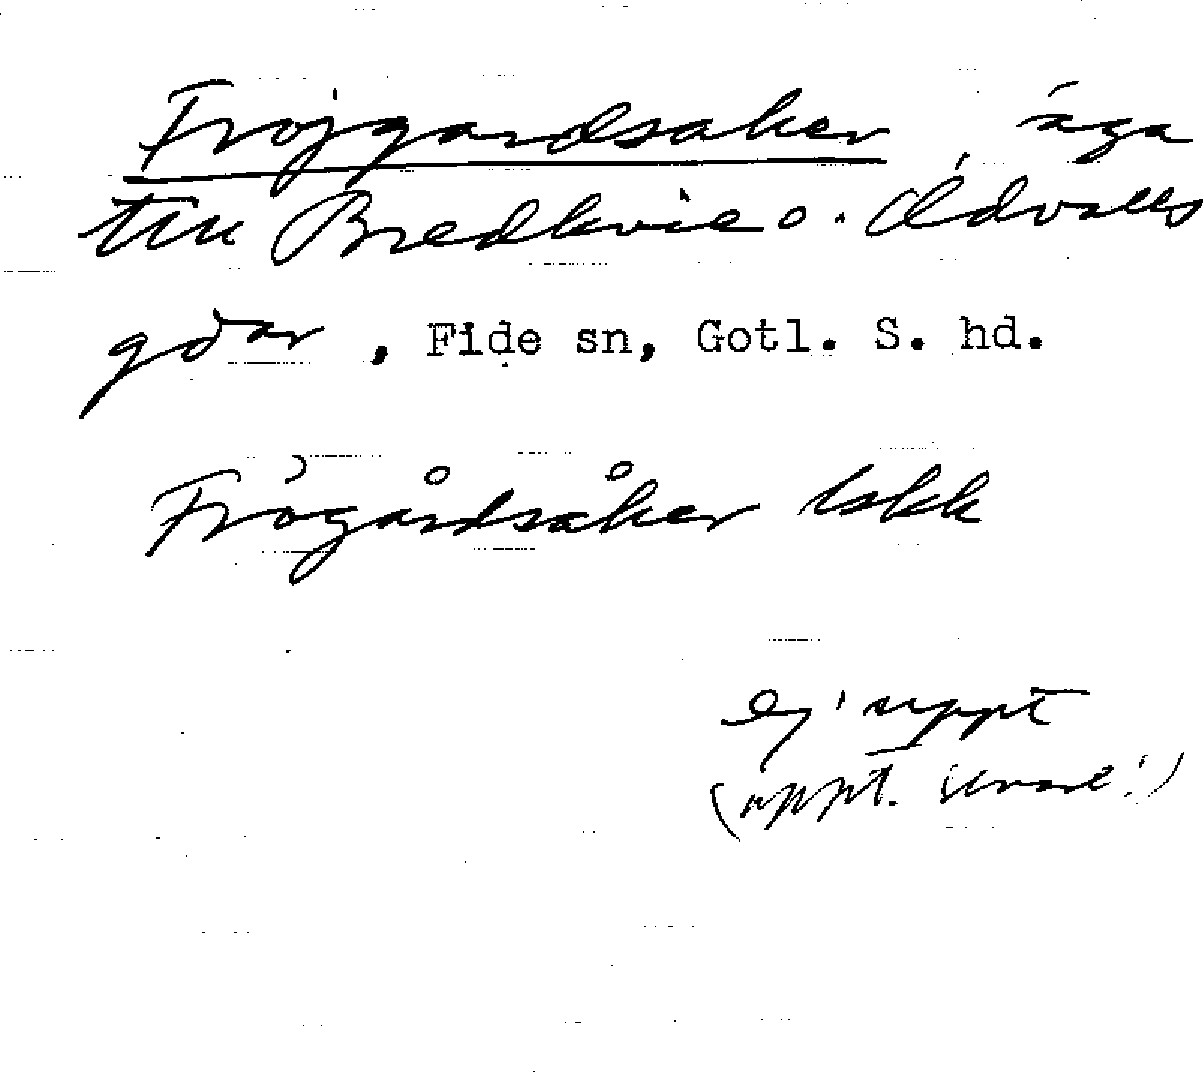 Fröjgardsaker, äga
till Bredkvie o. Ödvalls
gdar, Fide sn, Gotl. S. hd.
Frögårdsåker lskk
ej uppt
(uppt.